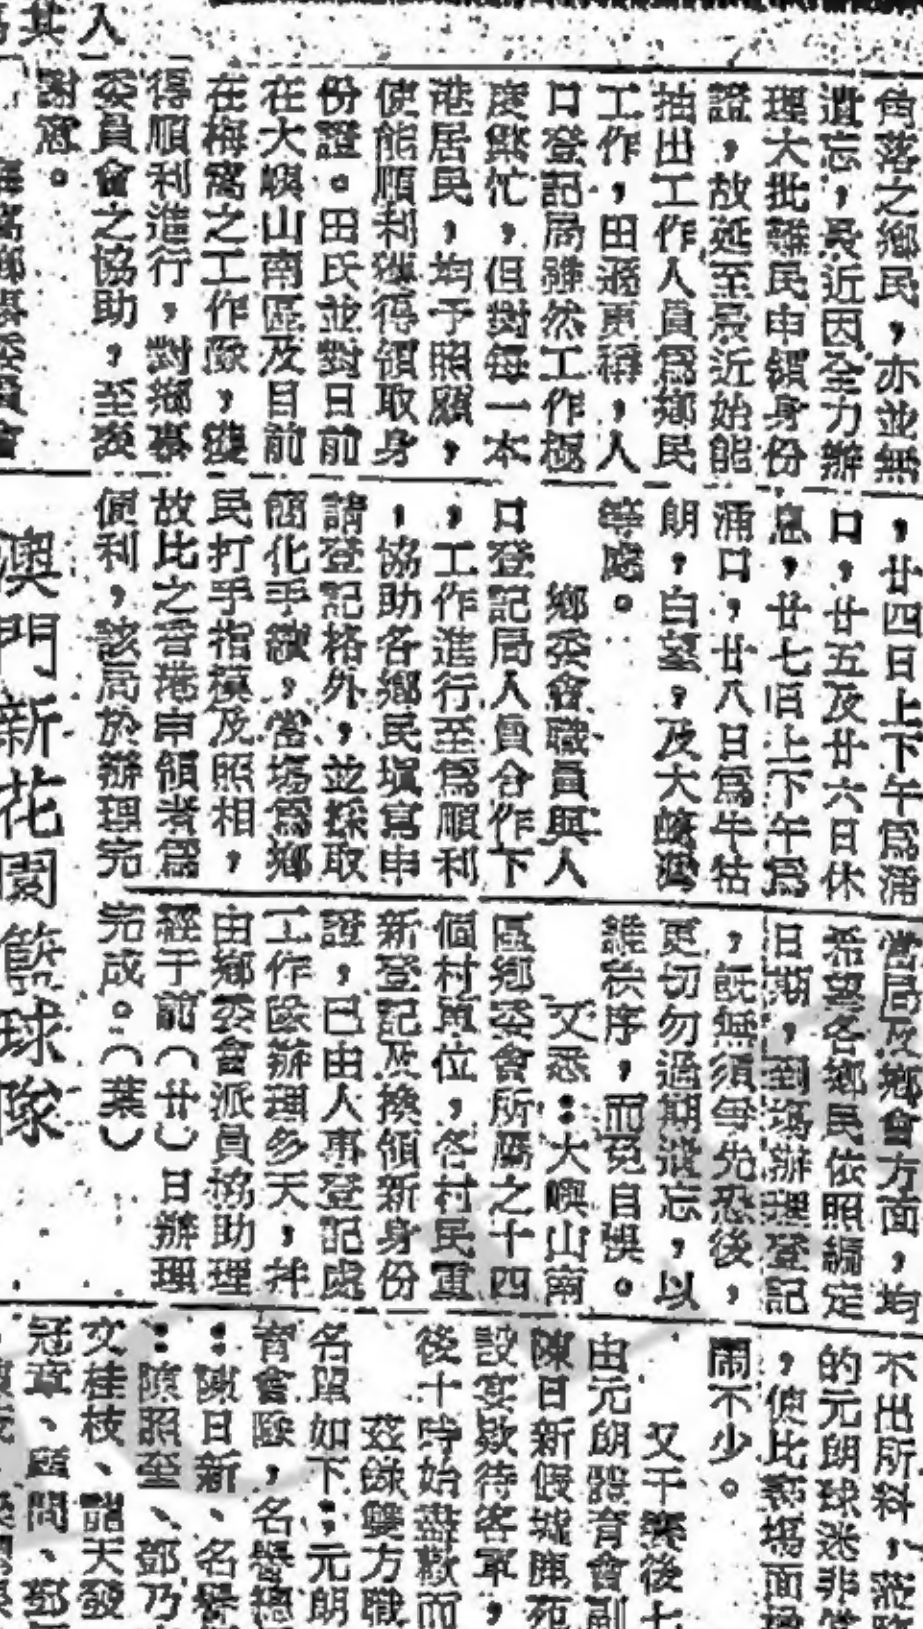 其人
角落之鄉民，亦並無
遺忘，最近因全力辦
理大批難民申領身份
證，故延至最近始能
抽出工作人員爲鄉民
工作，田遜更稱，人
口登記局雖然工作極
度繁忙，但對每一本
港居民，均予照顧，
使能順利獲得領取身
份證。田氏並對日前
在大嶼山南區及目前
在梅窩之工作隊，獲
得順利進行，對鄉事
委員會之協助，至表
謝意。
梅窩鄉事委員會
，廿四日上下午爲涌
口，廿五及廿六日休
息，廿七日上下午爲
涌口，廿八日爲牛牯
朗，白望，及大蠔灣
等處。
鄉委會職員與人
口登記局人員合作下
，工作進行至爲順利
，協助各鄉民填寫申
請登記格外，並採取
簡化手續，當塲爲鄉
民打手指模及照相，
故比之香港申領者爲
便利，該局於辦理完
當局及鄉會方面，均
希望各鄉民依照編定
日期，到塲辦理登記
，旣無須爭先恐後，
更切勿過期遺忘，以
維秩序，而免自悞。
又悉：大嶼山南
區鄉委會所屬之十四
個村單位，各村民重
新登記及換領新身份
證，已由人事登記處
工作隊辦理多天，幷
由鄉委會派員協助理
經于前（廿）日辦理
完成。（葉）
澳門新花園籃球隊
不出所料，蒞臨
的元朗球迷非常
，使比賽塲面
閙不少。
又于賽後七
由元朗體育會副
陳日新假墟
設宴欵待客軍，
後十時始盡歡而
茲錄雙方職
名單如下：元朗
育會隊，名譽總
：陳日新、名譽
：陳照至、鄧乃
文桂枝、 天發
冠章、 問、鄧